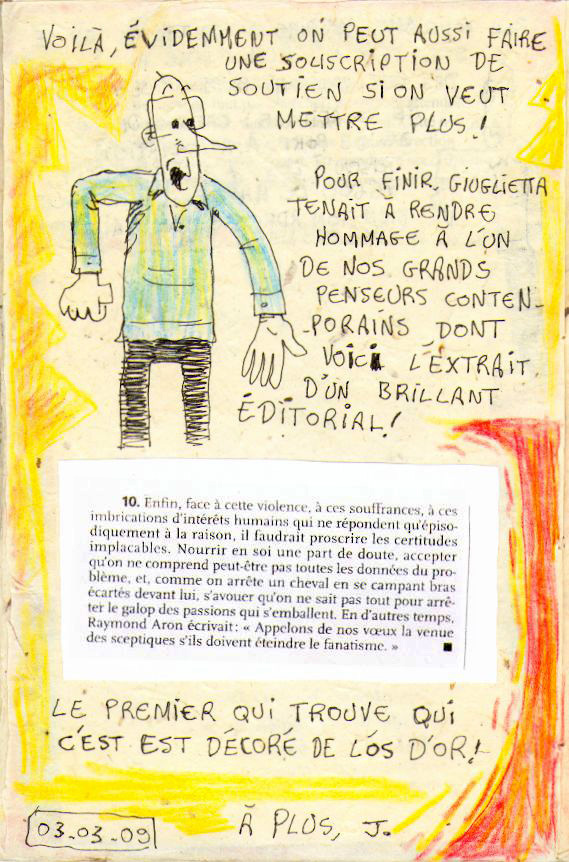 VOILÀ, ÉVIDEMMENT ON PEUT AUSSI FAIRE
UNE SOUSCRIPTION DE
SOUTIEN SI ON VEUT
METTRE PLUS!
POUR FINIR, GIUGLIETTA
TENAIT À RENDRE
HOMMAGE À L'UN
DE NOS GRANDS
PENSEURS CONTEN-
-PORAINS DONT
VOICI L'EXTRAIT
D'UN BRILLANT
ÉDITORIAL!
10. Enfin, face à cette violence, à ces souffrances, à ces
imbrications d'intérêts humains qui ne répondent qu'épiso-
diquement à la raison, il faudrait proscrire les certitudes
implacables. Nourrir en soi une part de doute, accepter
qu'on ne comprend peut-être pas toutes les données du pro-
blème, et, comme on arrête un cheval en se campant bras
écartés devant lui, s'avouer qu'on ne sait pas tout pour arrê-
ter le galop des passions qui s'emballent. En d'autres temps,
Raymond Aron écrivait : « Appelons de nos vœux la venue
des sceptiques s'ils doivent éteindre le fanatisme. »
LE PREMIER QUI TROUVE QUI
C'EST EST DÉCORÉ DE L'OS D'OR!
03.03.09
À PLUS, J.